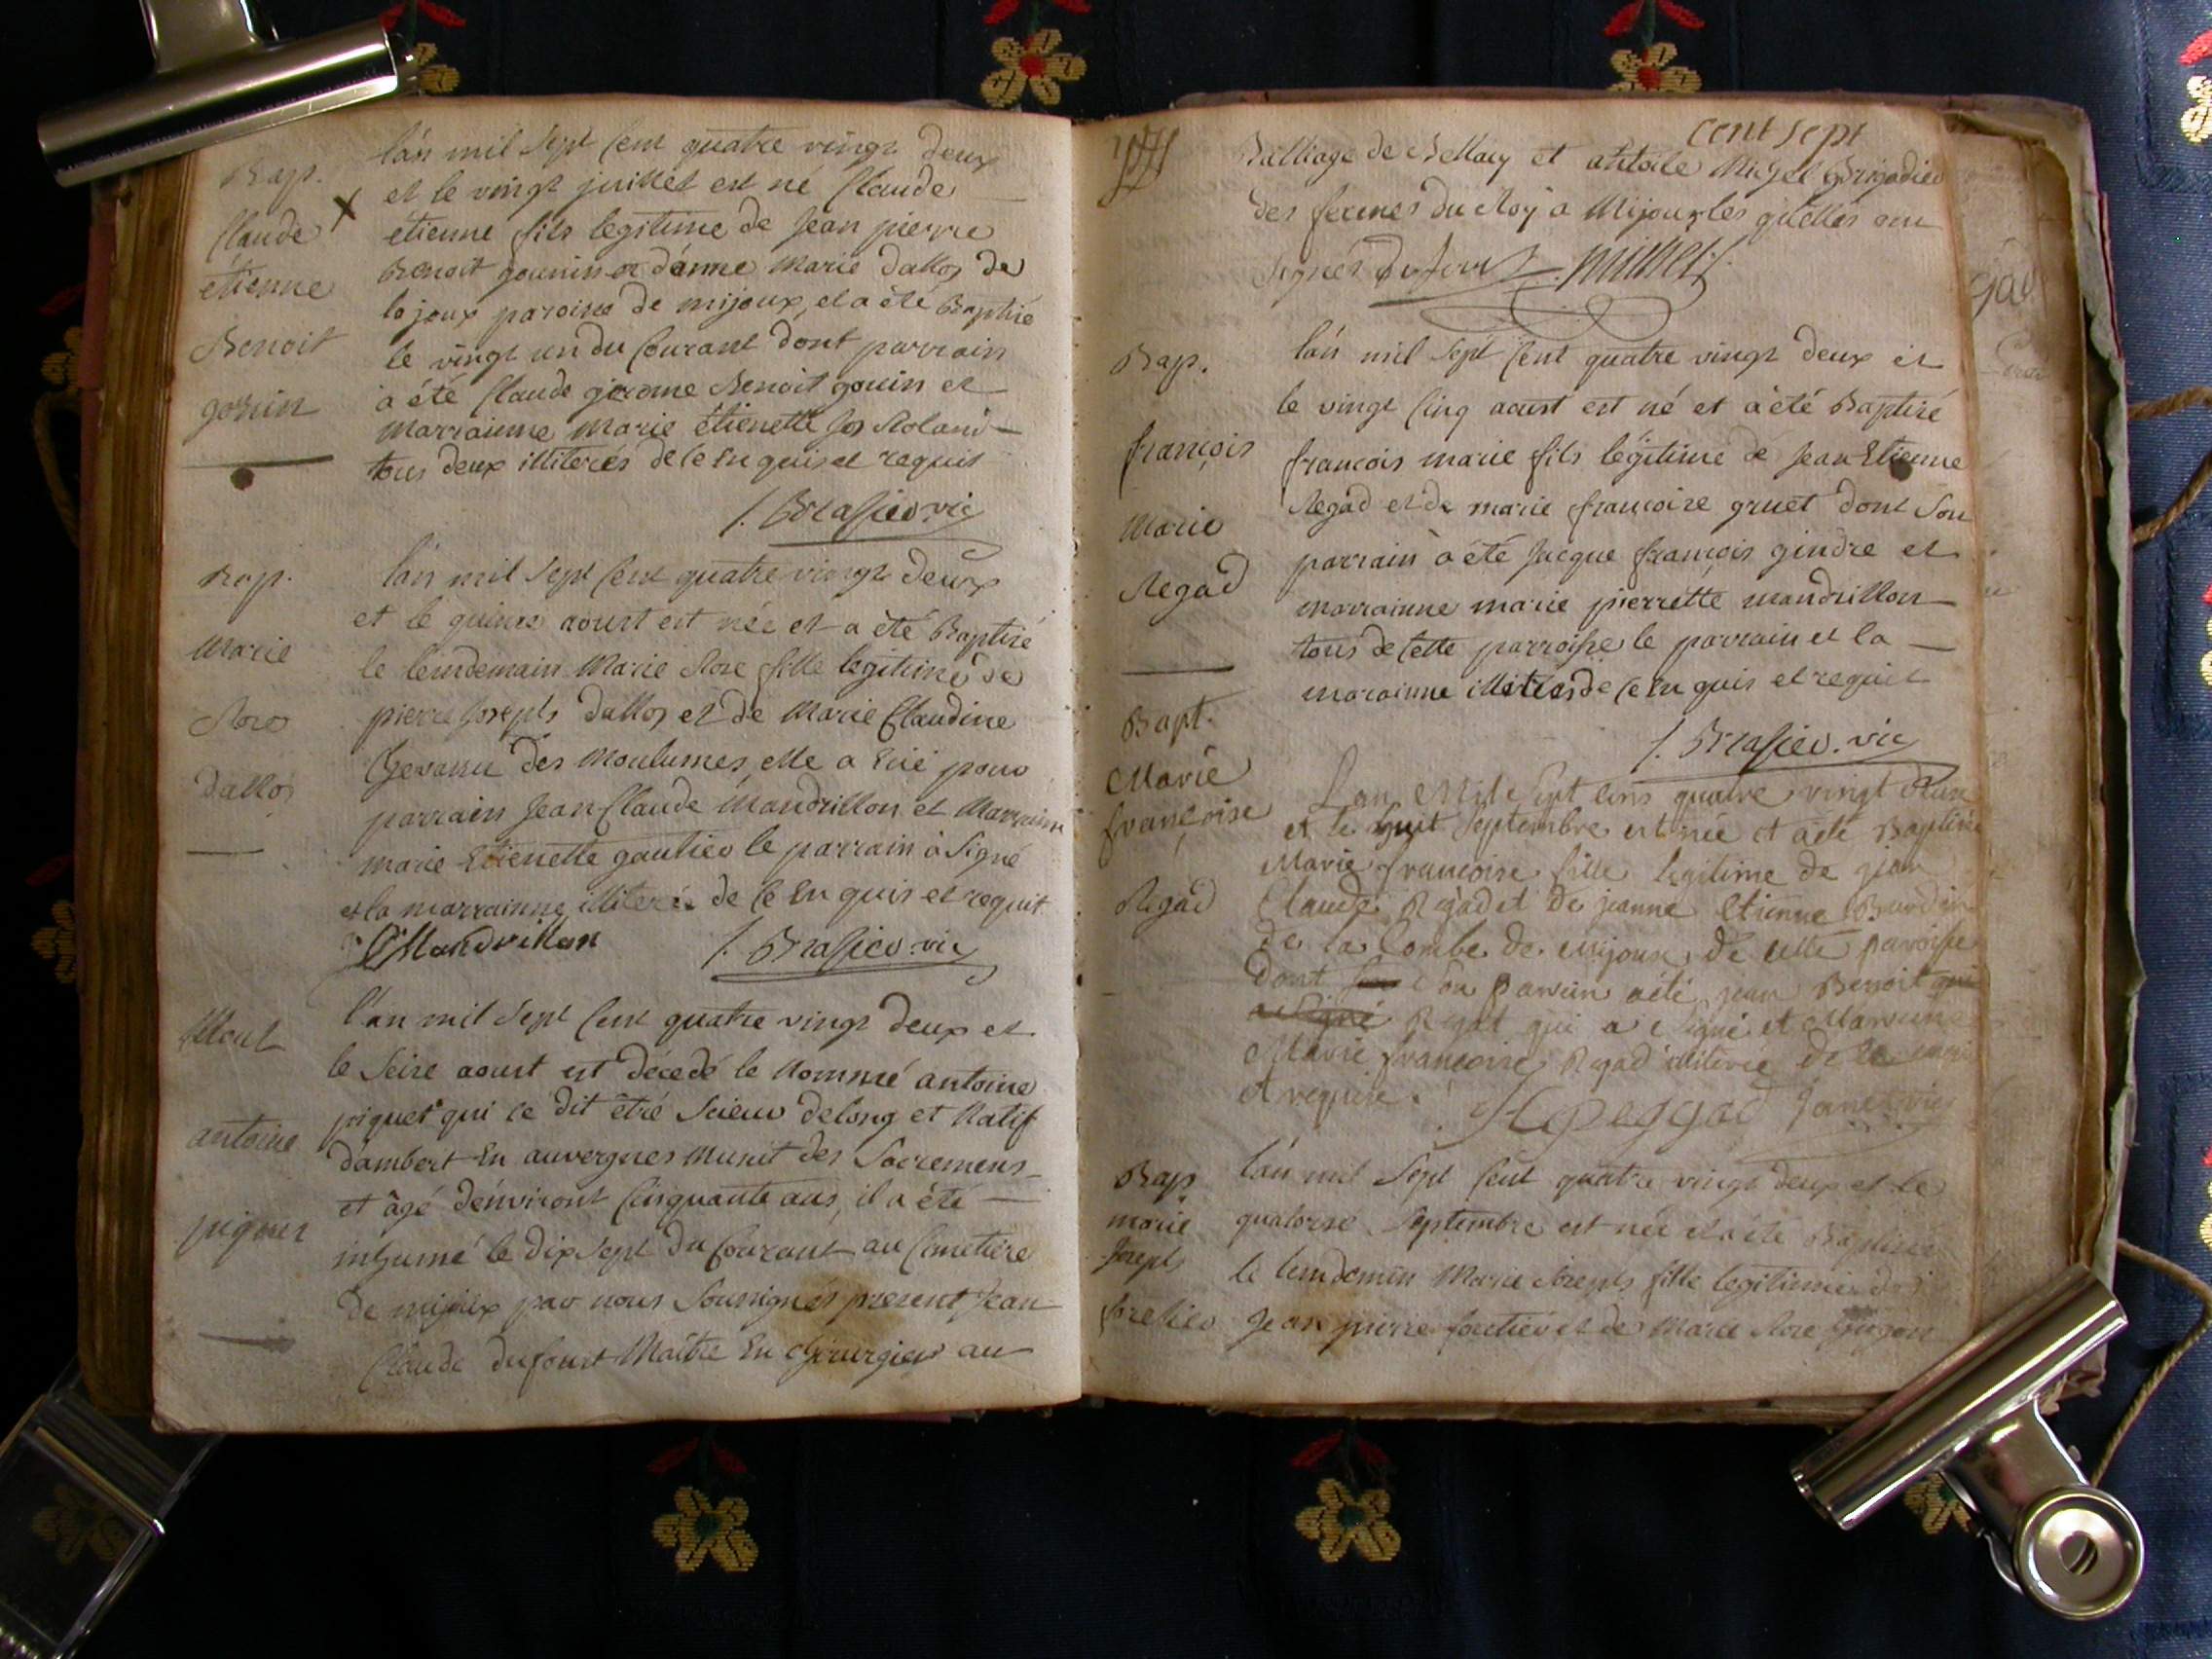 Bap.
Claude
etienne
Benoit
gonin
l'an mil sept cent quatre vingt deux
et le vingt juillet est né Claude
etienne fils legitime de Jean pierre
Benoit gounin et d'anne Marie dalloz de
la joux paroisse de mijoux, et a été Baptisé
le vingt un du Courant dont parrain
à été Claude gerome Benoit gouin et
marrainne marie étienette Roland
tous deux illiterés de ce Enquis et requis
Bap.
Marie
Rose
dalloz
l'an mil sept cent quatre vingt deux
et le quinze aoust est née et a été Baptisé
le lendemain Marie Rose fille legitime de
pierre Joseph dalloz et de Marie Claudine
des Moulumes, elle a Euë pour
parrain Jean Claude Mandrillon et Marraine
marie Etienette gautier le parrain à Signé
et la marrainne illiterée de ce Enquis et requit
Mandrillon
Mort
antoine
piquet
l'an mil sept cent quatre vingt deux et
le seize aoust est décedé le Nommé antoine
piquet qui ce dit être scieur delong et Natif
d'ambert En auvergnes Munit des Sacremens
et âgé d'environt Cinquante ans, il a été
inhumé le dix sept du Courant au Cimetière
de mijoux par nous Soussignés présent Jean
Claude dufourt Maître En chirurgien au
Cent sept
Balliage de Bellay et Brigadier
des fermes du Roy a Mijoux, lesquelles ont
signés
Bap.
françois
Marie
Regad
l'an mil sept Cent quatre vingt deux et
le vingt Cinq aoust est né et à été Baptisé
françois marie fils légitime de Jean Etienne
Regad et de marie françoise gruet dont Son
parrain à été Jacque françois gindre et
marrainne marie pierrette mandrillon
tous de Cette parroisse le parrain et la
marainne illiterés de ce Enquis et requit
Bapt.
Marie
françoise
Régad
L'an Mil Sept cens quatre vingt deux
et le huit Septembre est née et à été Baptisée
Marie françoise fille legitime de jean
Claude Régad et de jeanne Etienne
de la Combe de mijoux de cette paroisse
dont Son Parrain a été jean Benoit qui
a signé Régat qui a signé et Marraine
Marie françoise Régad illiterée de ce
et requise.
Bap
marie
Joseph
l'an mil Sept Cent quatre vingt deux et le
quatorze Septembre est née et a été Baptisée
le lendemin Marie Joseph fille legitime de
Jean pierre et de Marie Rose